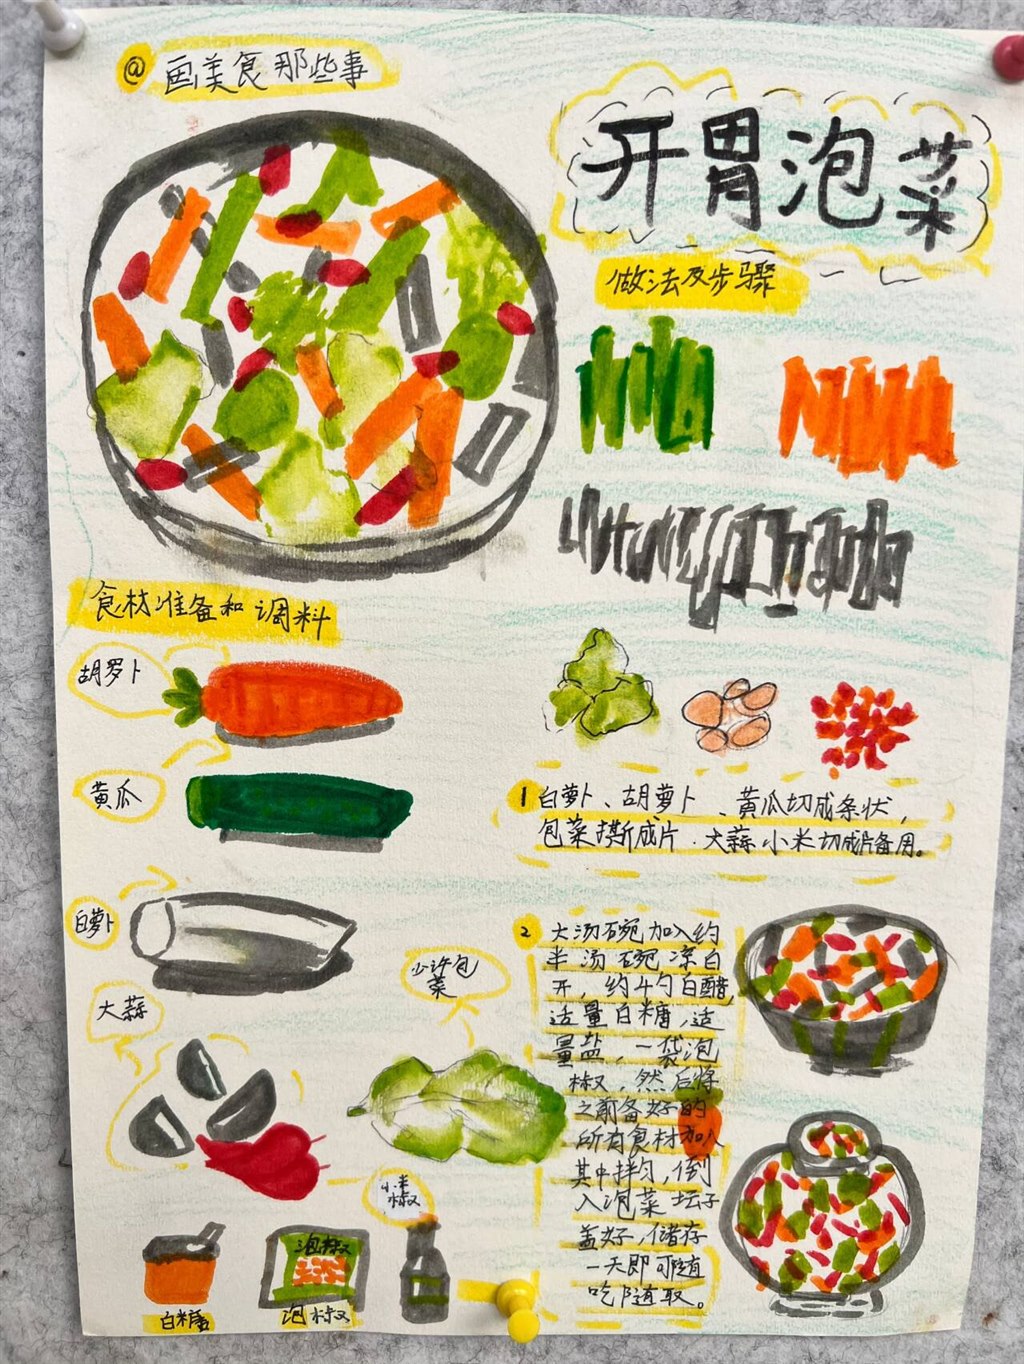 @ 画美食那些事
开胃泡菜
做法及步骤
食材准备和调料
胡罗卜
黄瓜
白萝卜
大蒜
少许包
菜
小米
椒
泡椒
白糖
泡椒
1 白萝卜、胡萝卜、黄瓜切成条状,
包菜撕成片.大蒜小米切成片备用。
2 大汤碗加入约
半汤碗凉白
开，约4勺白醋,
适量白糖,适
量盐，一袋泡
椒，然后将
之前备好的
所有食材加入
其中拌匀,倒
入泡菜坛子
盖好,储存
一天即可随
吃随取。